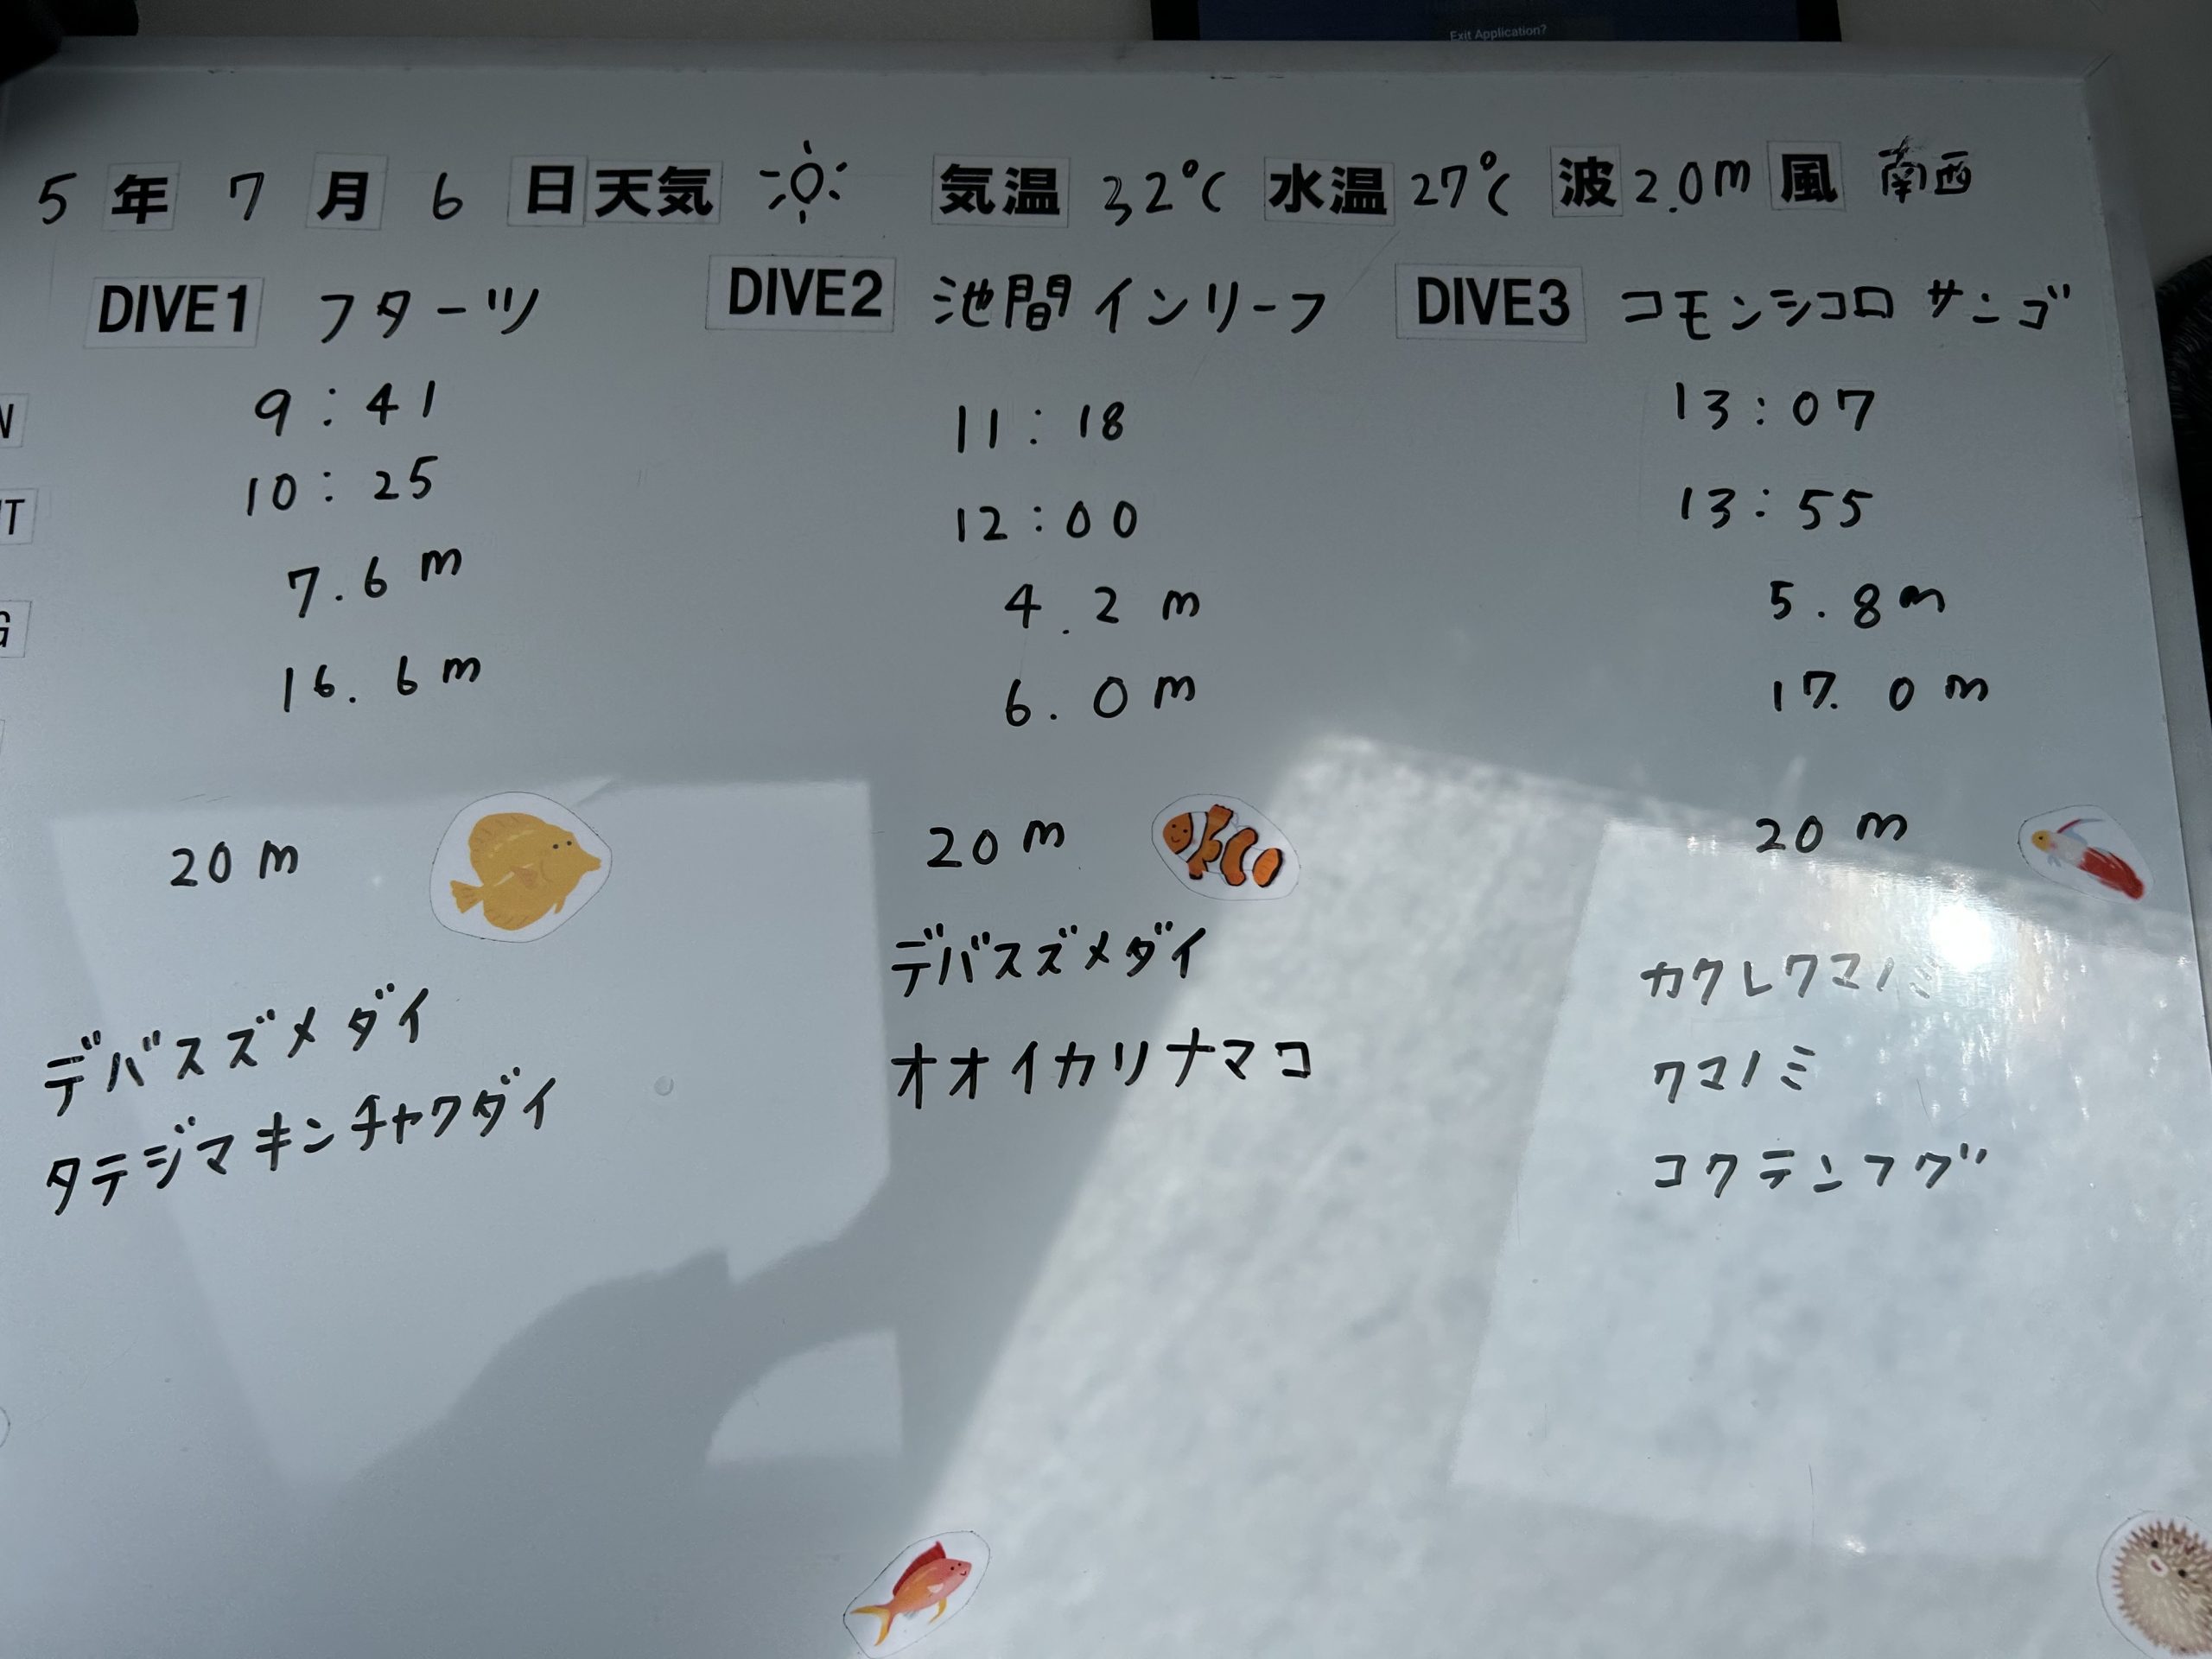 Exit Application?
5年 7月 6日 天気 気温 32℃ 水温 27℃ 波 2.0m 風 南西
DIVE1 フターツ DIVE2 池間インリーフ DIVE3 コモンシコロサンゴ
9:41 11:18 13:07
10:25 12:00 13:55
7.6m 4.2m 5.8m
16.6m 6.0m 17.0m
20m 20m 20m
デバスズメダイ デバスズメダイ カクレクマノミ
タテジマキンチャクダイ オオイカリナマコ クマノミ
コクテンフグ